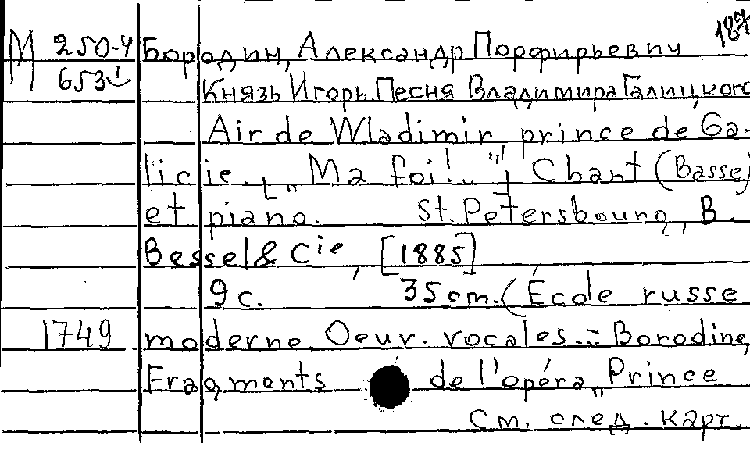 187
М 250-4 Бородин, Александр Порфирьевич
653 Князь Игорь. Песня Владимира Галицкого
Air de Wladimir prince de Ga-
licie. [„Ma foi!.."] Chant (Basse)
et piano. St. Petersbourg, B.
Bessel & Cie, [1885]
9 с. 35 cm. (École russe
1749 moderne. Oeuv. vocales.:- Borodine,
Fragments de l'opéra „Prince
См. след. карт.